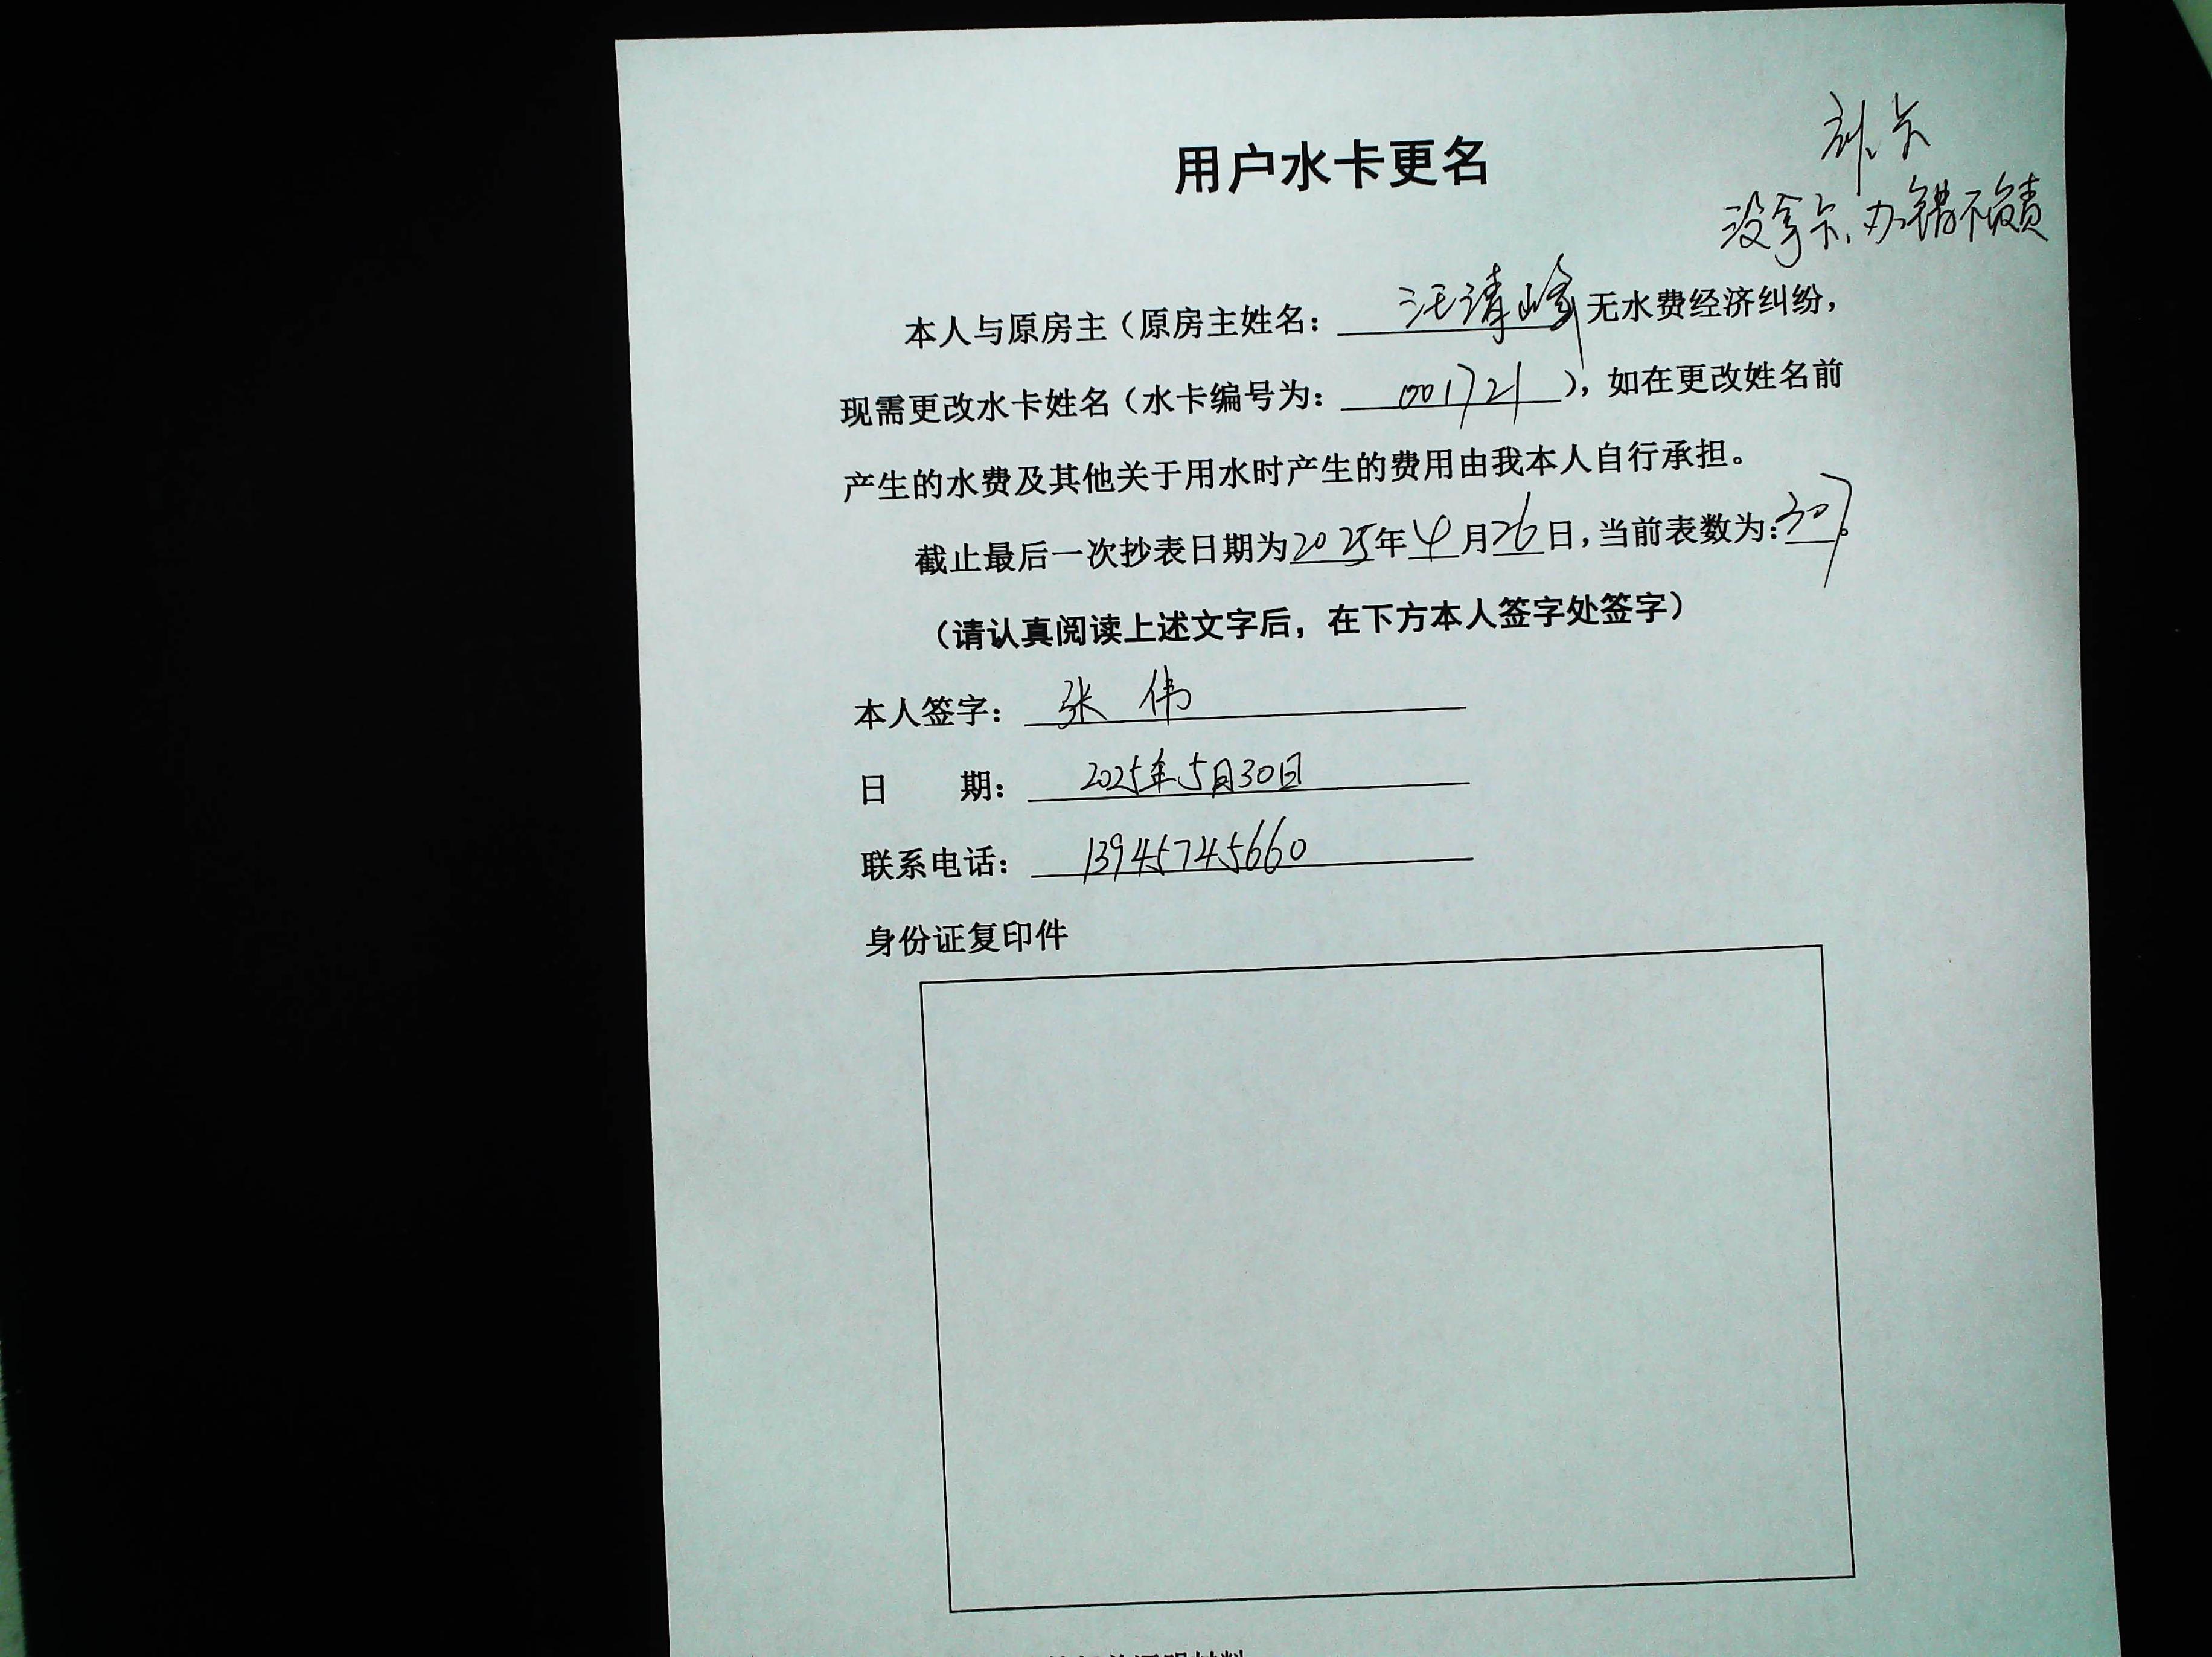 补卡
没拿卡、办错不负责
用户水卡更名
本人与原房主（原房主姓名：汪清峰无水费经济纠纷，
现需更改水卡姓名（水卡编号为：001721），如在更改姓名前
产生的水费及其他关于用水时产生的费用由我本人自行承担。
截止最后一次抄表日期为2025年4月26日，当前表数为：307。
（请认真阅读上述文字后，在下方本人签字处签字）
本人签字：张 伟
日 期：2025年5月30日
联系电话：13945745660
身份证复印件